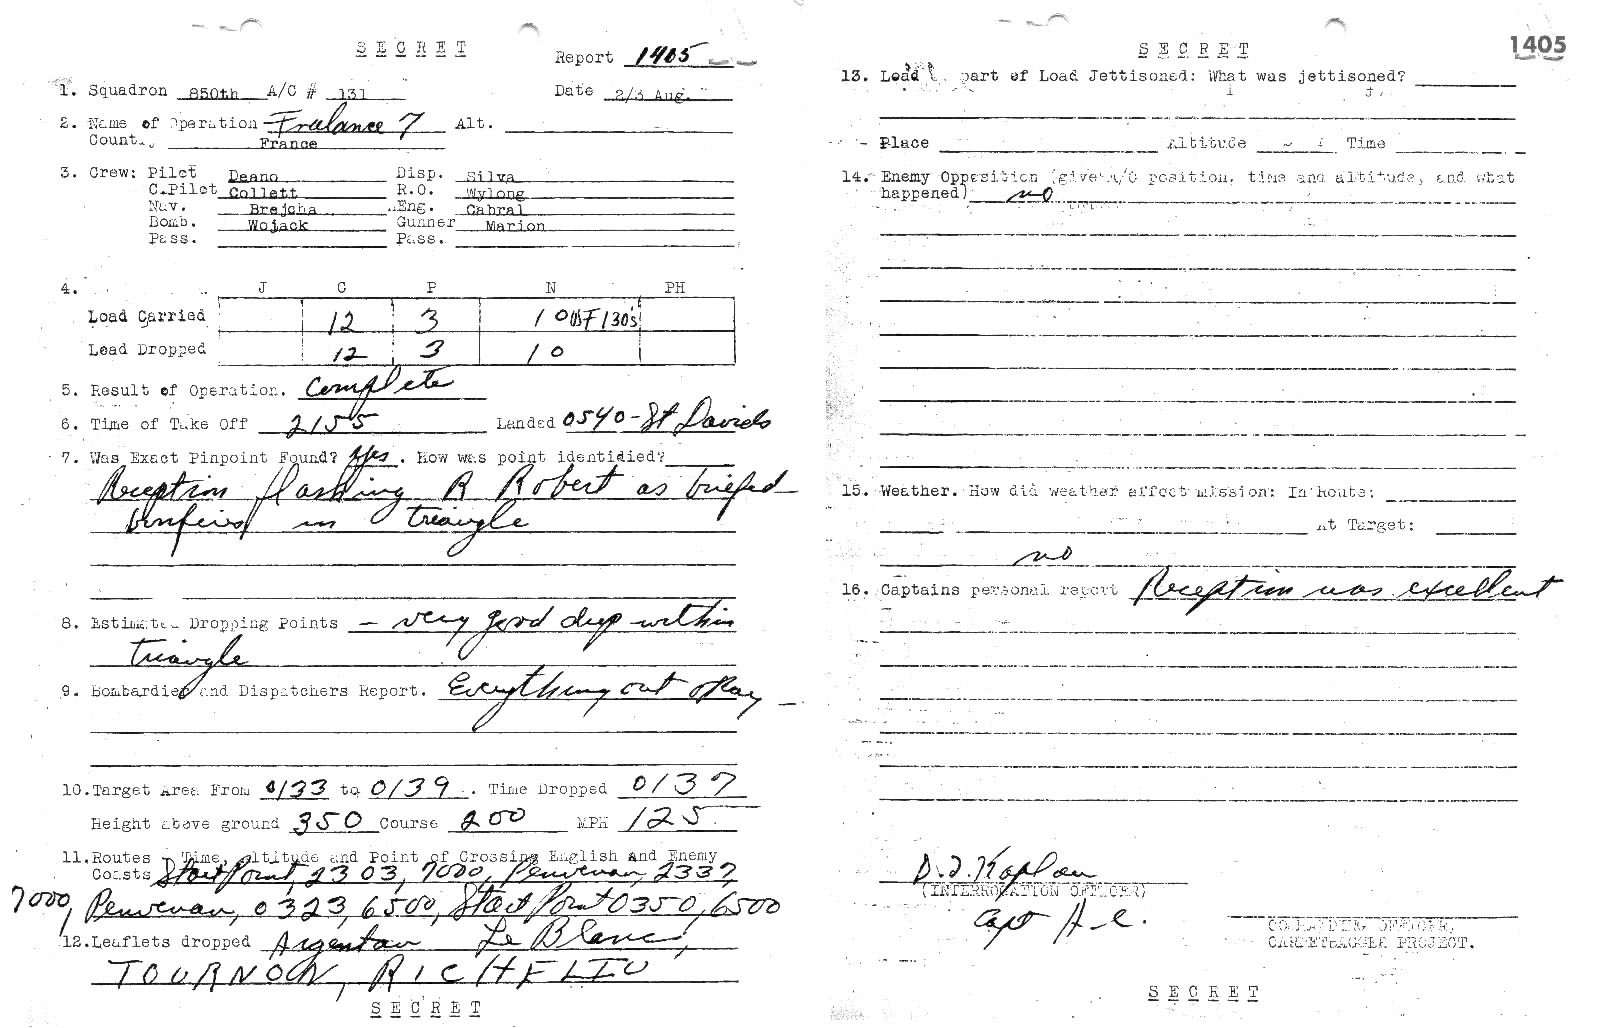 S E C R E T
Report 1405
1. Squadron 850th A/C # 131 Date 2/3 Aug.
2. Name of Operation Freelance 7 Alt.
France
3. Crew: Pilot Deano Disp. Silva
C.Pilot Collett R.O. Wylong
Nav. Brejcha Eng. Cabral
Bomb. Wojack Gunner Marion
Pass. Pass.
4. J C P N PH
Load Carried 12 3 10 130's
Load Dropped 12 3 10
5. Result of Operation. Complete
6. Time of Take Off 2155 Landed 0540-St Davids
7. Was Exact Pinpoint Found? Yes. How was point identidied?
Reception flashing R Robert as briefed
bonfires in triangle
8. Estimated Dropping Points - very good drop within
triangle
9. Bombardier and Dispatchers Report. Everything out okay
10. Target Area From 0133 to 0139. Time Dropped 0137
Height above ground 350 Course 200 MPH 125
11. Routes Time, Altitude and Point of Crossing English and Enemy
Coasts Start Point, 2303, 7000, Penvenan, 2337,
7000, Penvenan, 0323, 6500, Start Point 0350, 6500
12. Leaflets dropped Argentan Le Blanc,
TOURNON, RICHELIU
S E C R E T
S E C R E T
1405
13. Load part of Load Jettisoned: What was jettisoned?
Place Altitude Time
14. Enemy Opposition (give A/C position, time and altitude, and what
happened) no
15. Weather. How did weather affect mission: In route:
At Target:
no
16. Captains personal report Reception was excellent
D.J. Kaplan
(INTERROGATION OFFICER)
Capt A.C.
OFFICER,
CARPETBAGGER PROJECT.
S E C R E T